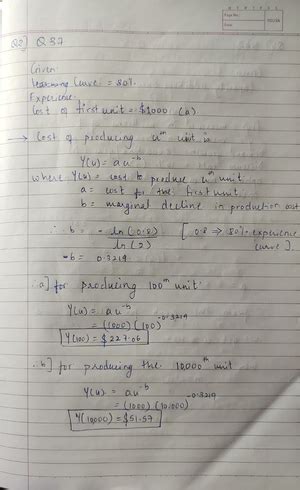 Page No.:
Date:
Q2] Q 37
Given:
Learning Curve = 80%
Experience
Cost of first unit = $1000 (a)
→ Cost of producing uth unit is
Y(u) = au^-b
where Y(u) = cost to produce uth unit
a = cost for the first unit
b = marginal decline in production cost
∴ b = - ln(0.8) [0.8 ⇒ 80% experience
ln(2) curve].
b = 0.3219
∴ a] for producing 100th unit
Y(u) = au^-b
= (1000)(100)^-0.3219
Y(100) = $227.06
∴ b] for producing the 10000th unit
Y(u) = au^-b
= (1000)(10,000)^-0.3219
Y(10000) = $51.57